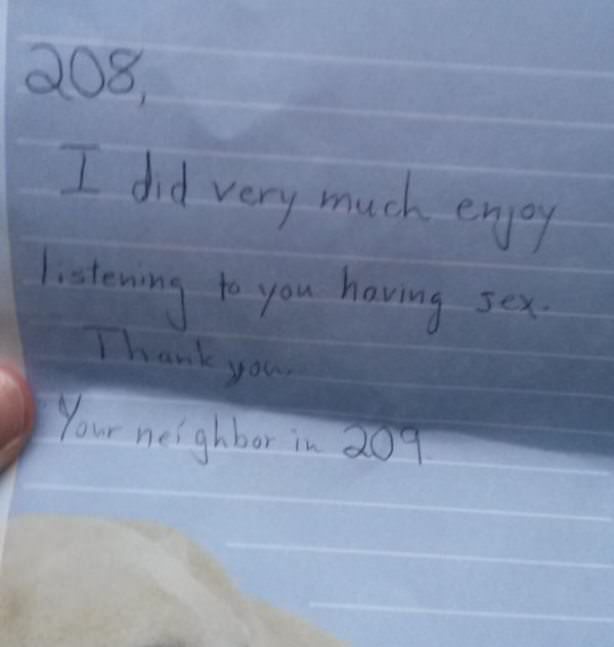 208,
I did very much enjoy
listening to you having sex.
Thank you.
Your neighbor in 209